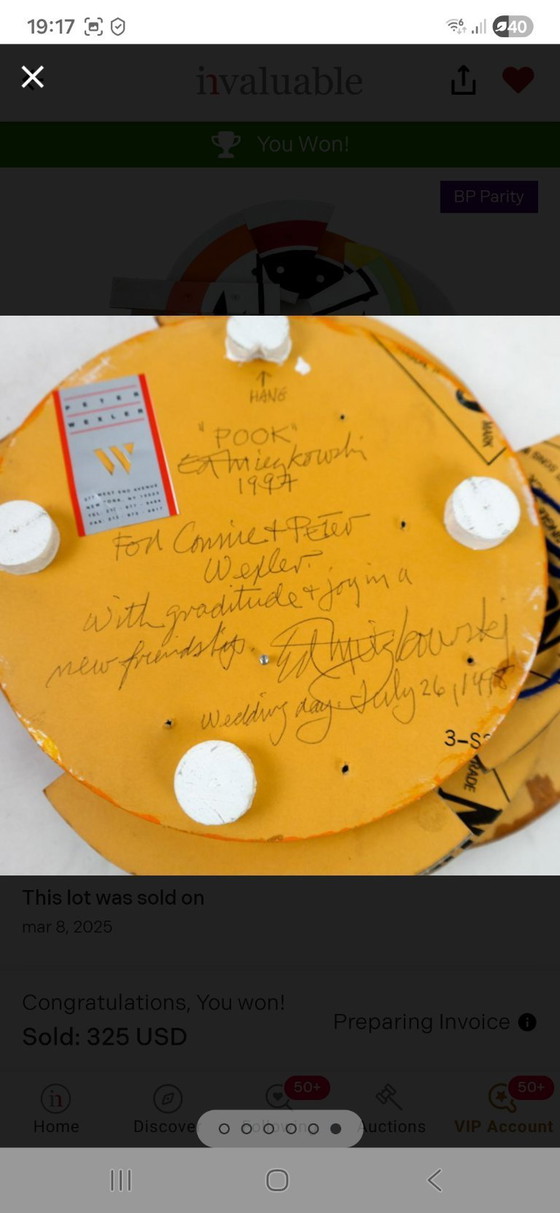 19:17
40
invaluable
You Won!
BP Parity
↑
HANG
"POOK"
Ed Mieczkowski
1997
PETER
WEXLER
W
277 WEST END AVENUE
NEW YORK, NY 10023
MARK
For Connie + Peter
Wexler.
With graditude + joy in a
new friendship.
Ed Mieczkowski
Wedding day. July 26, 1998
3-S
RADE
This lot was sold on
mar 8, 2025
Congratulations, You won!
Sold: 325 USD
Preparing Invoice
50+
50+
Home
Discover
Following
Auctions
VIP Account